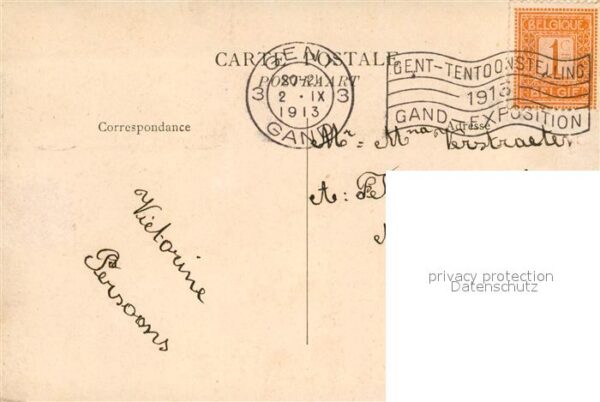 CARTE POSTALE
POSTKAART
GENT
3 20-21 3
2 · IX
1913
GAND
GENT-TENTOONSTELLING
1913
GAND-EXPOSITION
BELGIQUE
1c
BELGIË
Correspondance
Adresse
Mr Mna Verstraeten
A:
Victorine
Persoons
privacy protection
Datenschutz